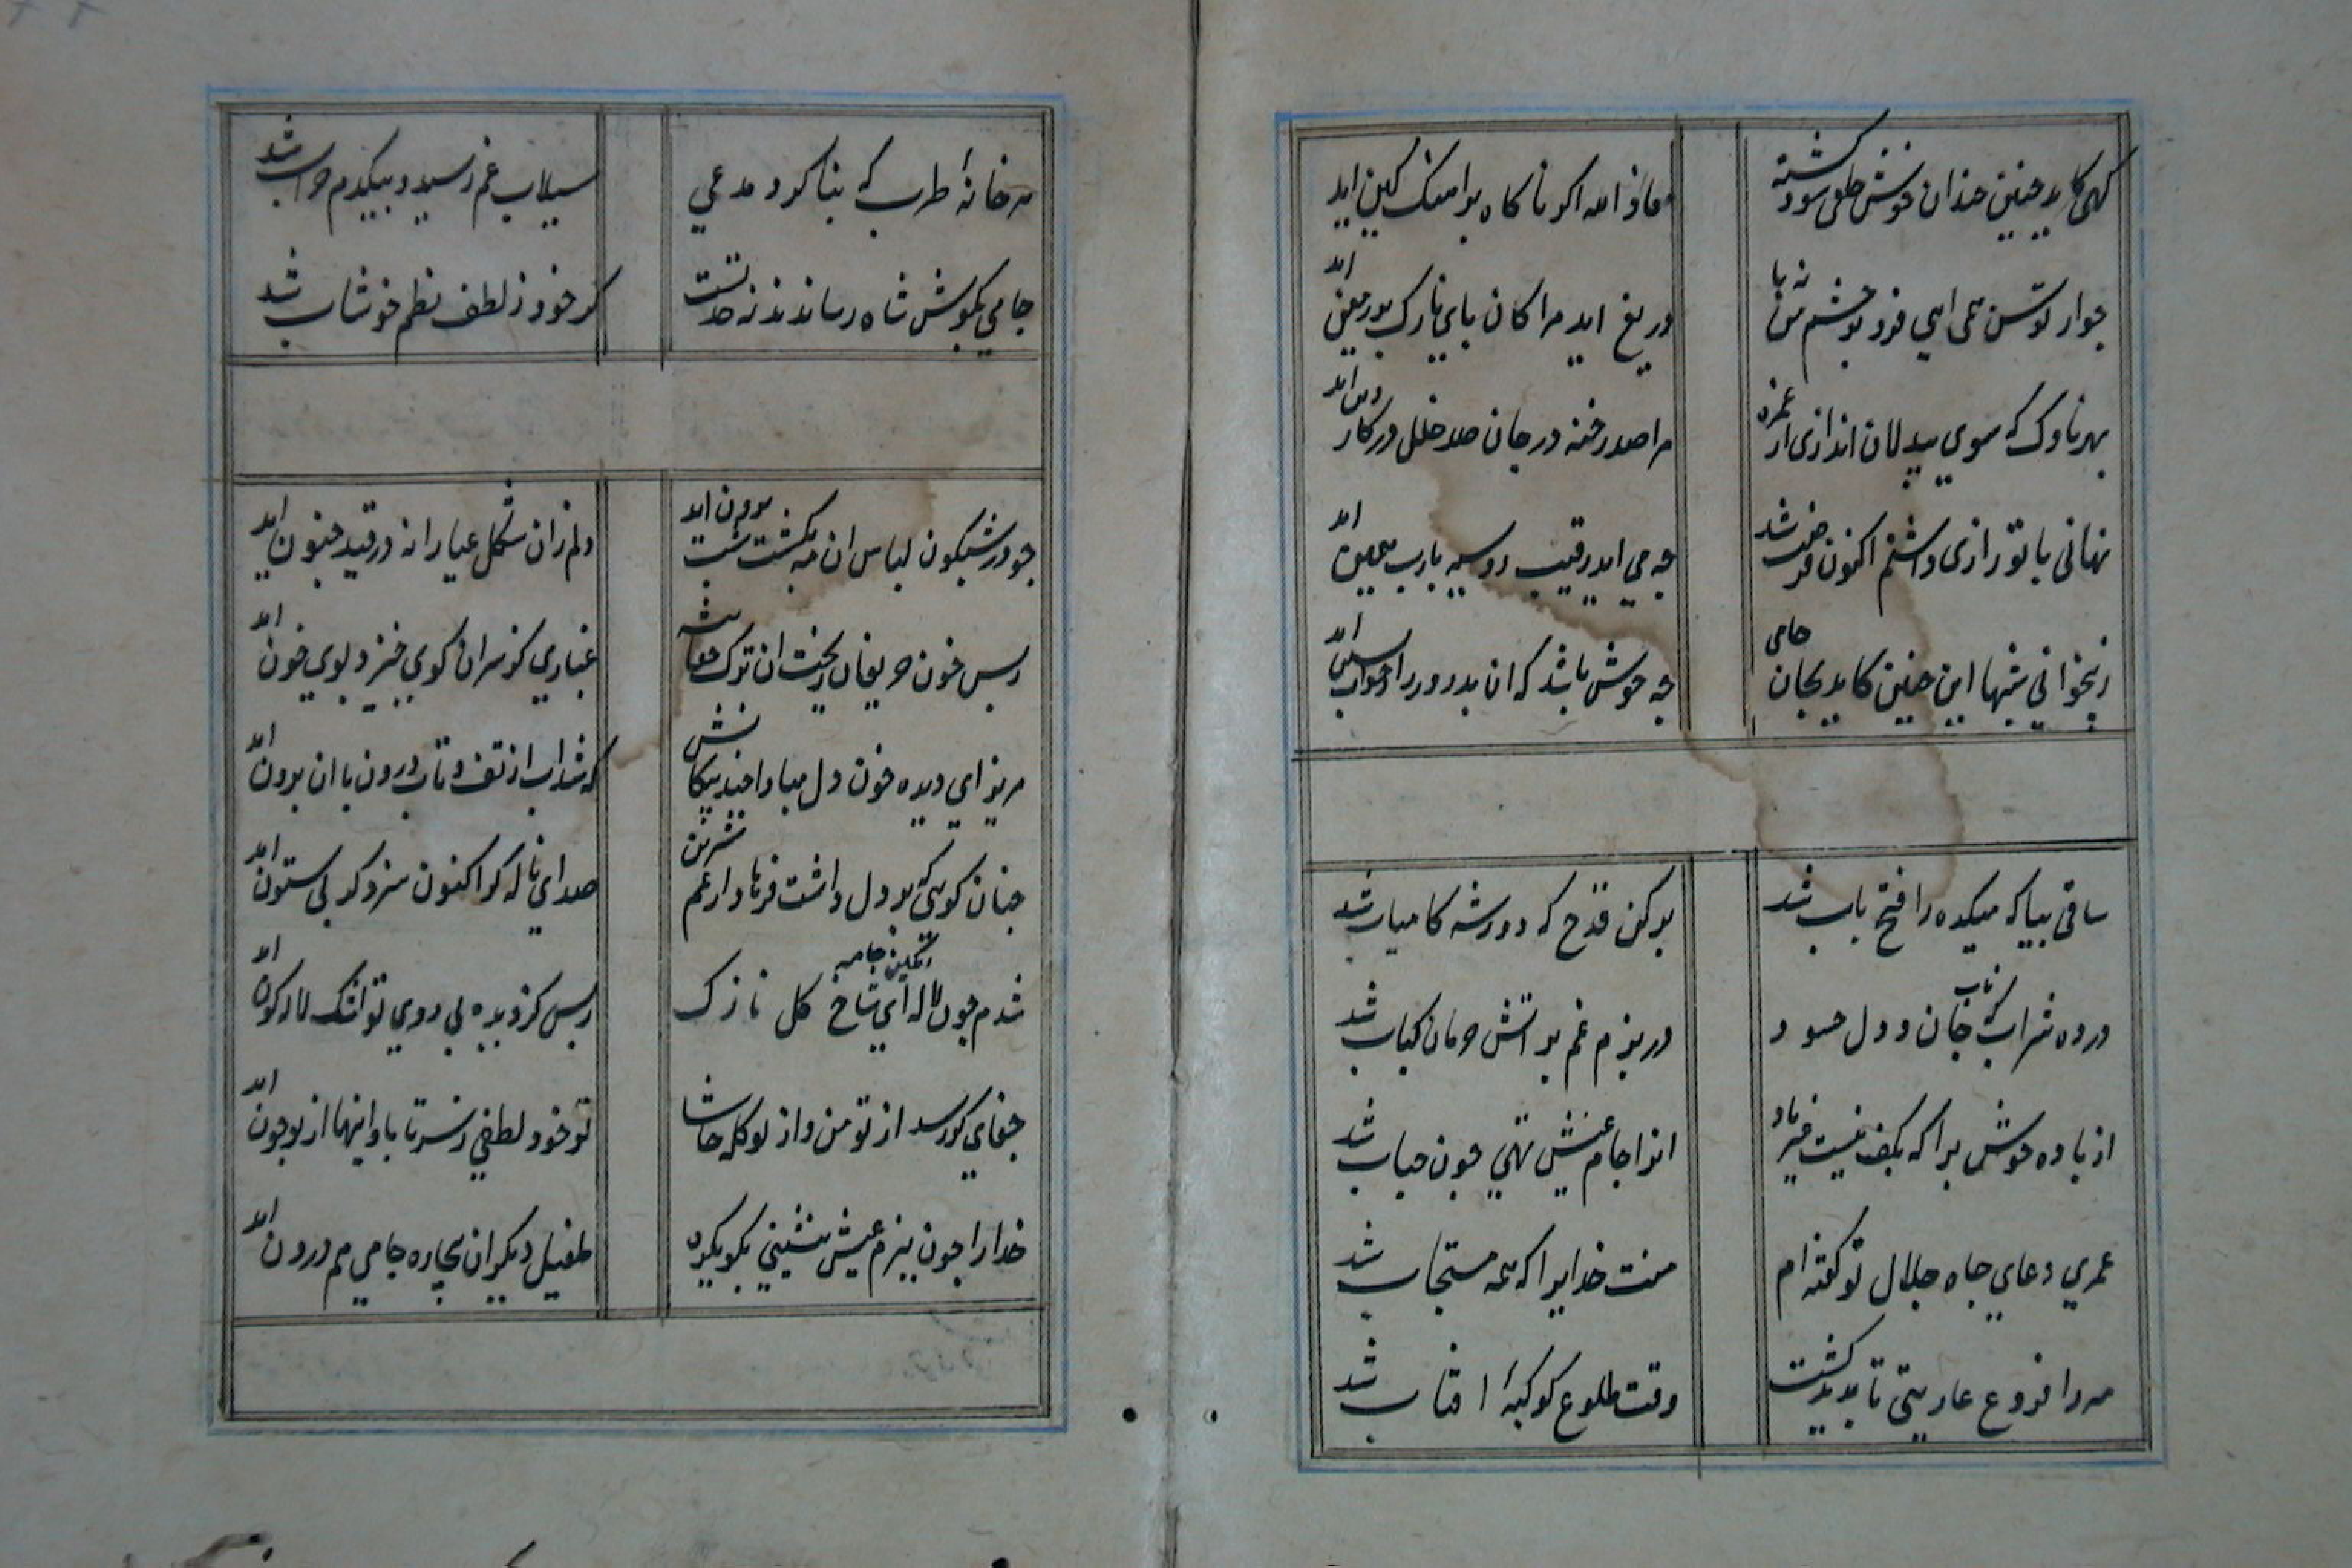 کهی کاید چنین خندان خوش خلقی شود کشته معاذ الله اکر ناکاه بر اهنک کین اید
چو از توسن همی ایی فرود بر چشم من نه پا دریغ اید مرا کان پای نازک بر زمین اید
بهر ناوک که سوی بیدلان اندازی از غمزه مرا صد رخنه در جان صد خلل در کار و دین اید
نهانی با تو رازی داشتم اکنون که فرصت شد چه می اید رقیب روسیه یارب همین اید
ز بیخوابی شبها این چنین کاید بجان جامی چه خوش باشد که ان بدرود را خواب پسین اید
ساقی بیا که میکده را فتح باب شد پر کن قدح که دور شه کامیاب شد
درده شراب ناب که جان و دل حسود در بزم غم بر اتش حرمان کباب شد
از باده خوش برا که بکف نیست غیر باد انرا جام عیش تهی چون حباب شد
عمری دعای جاه جلال تو کفته ام منت خدایرا که همه مستجاب شد
مه را فروغ عاریتی ناپدید کشت وقت طلوع کوکبهٔ افتاب شد
هر خانهٔ طرب که بنا کرد مدعی سیلاب غم رسید و بیکدم خراب شد
جامی بکوش شاه رساندند نه حدتست کر خود ز لطف نظم خوشاب شد
چو در شبکون لباس ان مه بکشت شب برون اید دلم زان شکل عیارانه در قید جنون اید
ز بس خون حریفان ریخت ان ترک غباری کز سران کوی خیزد بوی خون اید
مریز ای دیده خون دل مبادا چند پیکانش که شد اب از تف و تاب درون با ان برون اید
چنان کوهی که بر دل داشت فرهاد از غم شیرین صدای ناله کر اکنون سزد کر بی ستون اید
شدم چون لاله رنکین جامه ای شاخ کل نازک ز بس کز دیده بی روی تو اشک لاله کون اید
جفای کر رسد از تو من و از تو کله حاشا تو خود لطفی ز سر تا پا و اینها از تو چون اید
خدارا چون ببزم عیش بنشینی بکو یکره طفیل دیکران بیچاره جامی هم درون اید